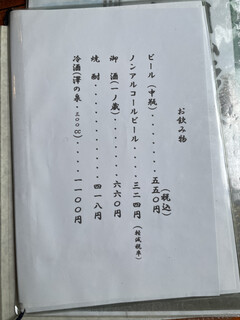 お飲み物
(税込)
ビール (中瓶)・・・・・・・五五〇円
ノンアルコールビール・・・・三二四円 (軽減税率)
御酒(一ノ蔵)・・・・・・六六〇円
焼酎・・・・・・・・・・四一八円
冷酒(澤の泉・300cc)・・・・一一〇〇円